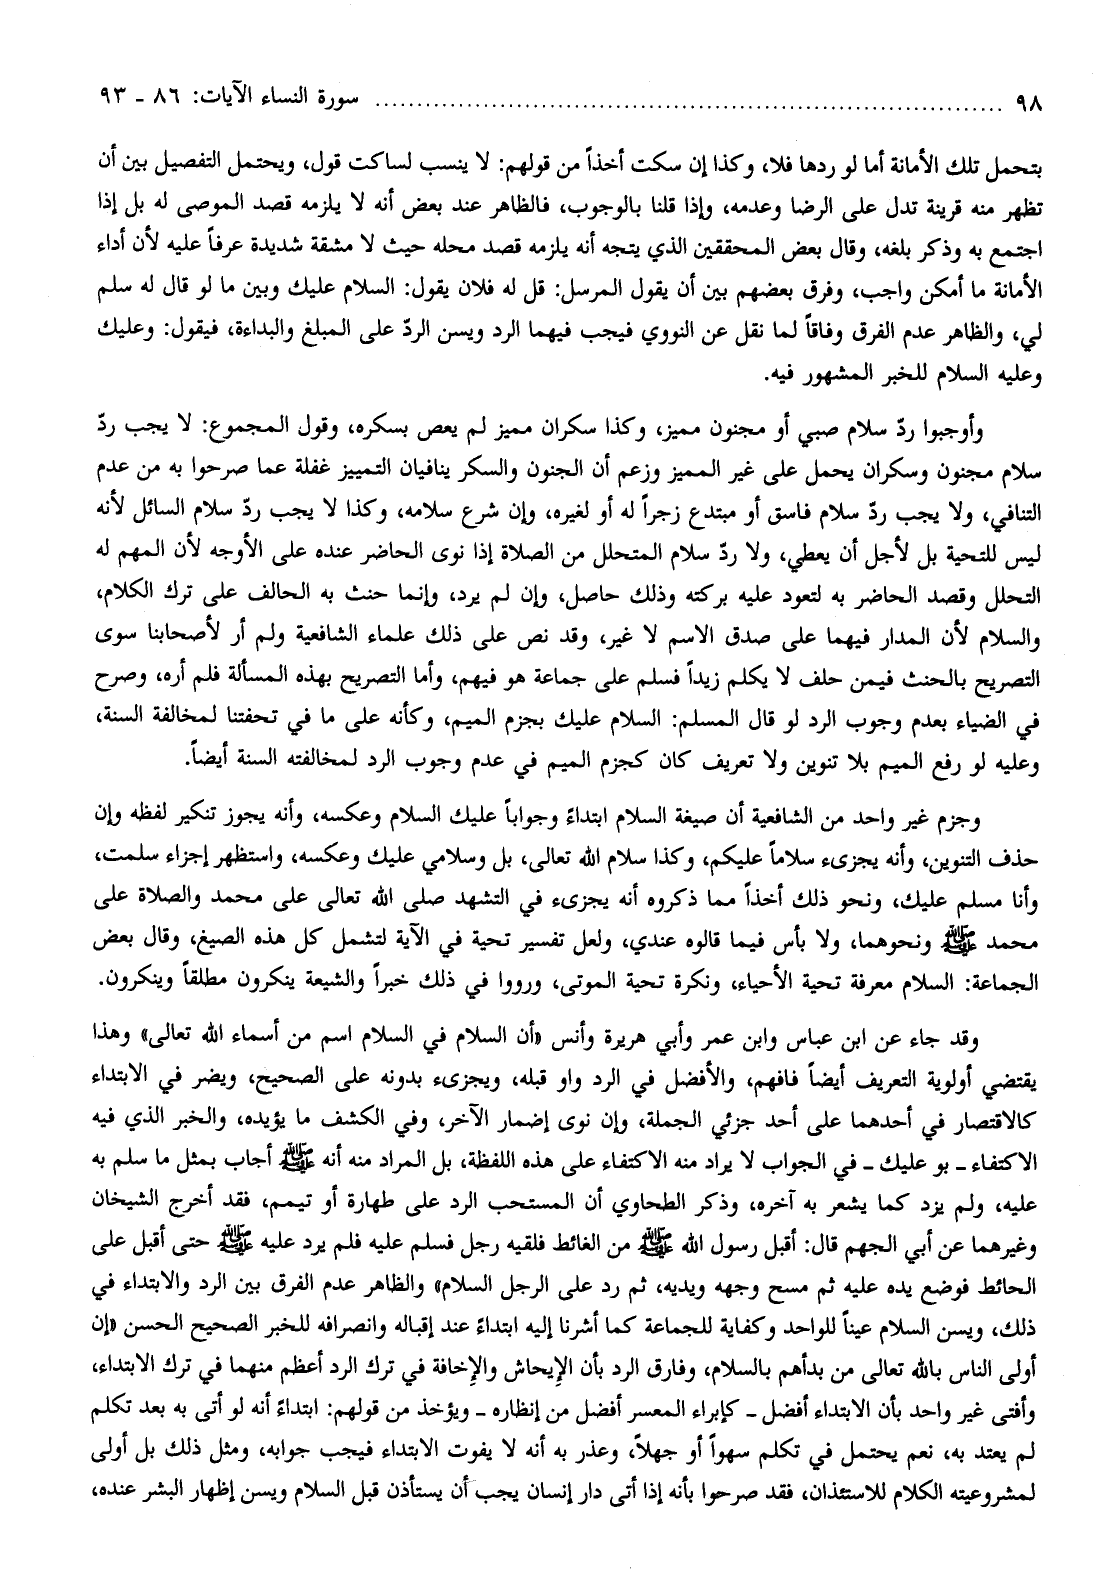 ٩٨ ........................................ سورة النساء الآيات: ٨٦ ـ ٩٣
بتحمل تلك الأمانة أما لو ردها فلا، وكذا إن سكت أخذاً من قولهم: لا ينسب لساكت قول، ويحتمل التفصيل بين أن
تظهر منه قرينة تدل على الرضا وعدمه، وإذا قلنا بالوجوب، فالظاهر عند بعض أنه لا يلزمه قصد الموصى له بل إذا
اجتمع به وذكر بلغه، وقال بعض المحققين الذي يتجه أنه يلزمه قصد محله حيث لا مشقة شديدة عرفاً عليه لأن أداء
الأمانة ما أمكن واجب، وفرق بعضهم بين أن يقول المرسل: قل له فلان يقول: السلام عليك وبين ما لو قال له سلم
لي، والظاهر عدم الفرق وفاقاً لما نقل عن النووي فيجب فيهما الرد ويسن الردّ على المبلغ والبداءة، فيقول: وعليك
وعليه السلام للخبر المشهور فيه.
وأوجبوا ردّ سلام صبي أو مجنون مميز، وكذا سكران مميز لم يعص بسكره، وقول المجموع: لا يجب ردّ
سلام مجنون وسكران يحمل على غير المميز وزعم أن الجنون والسكر ينافيان التمييز غفلة عما صرحوا به من عدم
التنافي، ولا يجب ردّ سلام فاسق أو مبتدع زجراً له أو لغيره، وإن شرع سلامه، وكذا لا يجب ردّ سلام السائل لأنه
ليس للتحية بل لأجل أن يعطي، ولا ردّ سلام المتحلل من الصلاة إذا نوى الحاضر عنده على الأوجه لأن المهم له
التحلل وقصد الحاضر به لتعود عليه بركته وذلك حاصل، وإن لم يرد، وإنما حنث به الحالف على ترك الكلام،
والسلام لأن المدار فيهما على صدق الاسم لا غير، وقد نص على ذلك علماء الشافعية ولم أر لأصحابنا سوى
التصريح بالحنث فيمن حلف لا يكلم زيداً فسلم على جماعة هو فيهم، وأما التصريح بهذه المسألة فلم أره، وصرح
في الضياء بعدم وجوب الرد لو قال المسلم: السلام عليك بجزم الميم، وكأنه على ما في تحفتنا لمخالفة السنة،
وعليه لو رفع الميم بلا تنوين ولا تعريف كان كجزم الميم في عدم وجوب الرد لمخالفته السنة أيضاً.
وجزم غير واحد من الشافعية أن صيغة السلام ابتداءً وجواباً عليك السلام وعكسه، وأنه يجوز تنكير لفظه وإن
حذف التنوين، وأنه يجزىء سلاماً عليكم، وكذا سلام الله تعالى، بل وسلامي عليك وعكسه، واستظهر إجزاء سلمت،
وأنا مسلم عليك، ونحو ذلك أخذاً مما ذكروه أنه يجزىء في التشهد صلى الله تعالى على محمد والصلاة على
محمد ﷺ ونحوهما، ولا بأس فيما قالوه عندي، ولعل تفسير تحية في الآية لتشمل كل هذه الصيغ، وقال بعض
الجماعة: السلام معرفة تحية الأحياء، ونكرة تحية الموتى، ورووا في ذلك خبراً والشيعة ينكرون مطلقاً وينكرون.
وقد جاء عن ابن عباس وابن عمر وأبي هريرة وأنس «أن السلام في السلام اسم من أسماء الله تعالى» وهذا
يقتضي أولوية التعريف أيضاً فافهم، والأفضل في الرد واو قبله، ويجزىء بدونه على الصحيح، ويضر في الابتداء
كالاقتصار في أحدهما على أحد جزئي الجملة، وإن نوى إضمار الآخر، وفي الكشف ما يؤيده، والخبر الذي فيه
الاكتفاء ـ بو عليك ـ في الجواب لا يراد منه الاكتفاء على هذه اللفظة، بل المراد منه أنه ﷺ أجاب بمثل ما سلم به
عليه، ولم يزد كما يشعر به آخره، وذكر الطحاوي أن المستحب الرد على طهارة أو تيمم، فقد أخرج الشيخان
وغيرهما عن أبي الجهم قال: أقبل رسول الله ﷺ من الغائط فلقيه رجل فسلم عليه فلم يرد عليه ﷺ حتى أقبل على
الحائط فوضع يده عليه ثم مسح وجهه ويديه، ثم رد على الرجل السلام» والظاهر عدم الفرق بين الرد والابتداء في
ذلك، ويسن السلام عيناً للواحد وكفاية للجماعة كما أشرنا إليه ابتداءً عند إقباله وانصرافه للخبر الصحيح الحسن «إن
أولى الناس بالله تعالى من بدأهم بالسلام، وفارق الرد بأن الإيحاش والإخافة في ترك الرد أعظم منهما في ترك الابتداء،
وأفتى غير واحد بأن الابتداء أفضل ـ كإبراء المعسر أفضل من إنظاره ـ ويؤخذ من قولهم: ابتداءً أنه لو أتى به بعد تكلم
لم يعتد به، نعم يحتمل في تكلم سهواً أو جهلاً، وعذر به أنه لا يفوت الابتداء فيجب جوابه، ومثل ذلك بل أولى
لمشروعيته الكلام للاستئذان، فقد صرحوا بأنه إذا أتى دار إنسان يجب أن يستأذن قبل السلام ويسن إظهار البشر عنده،